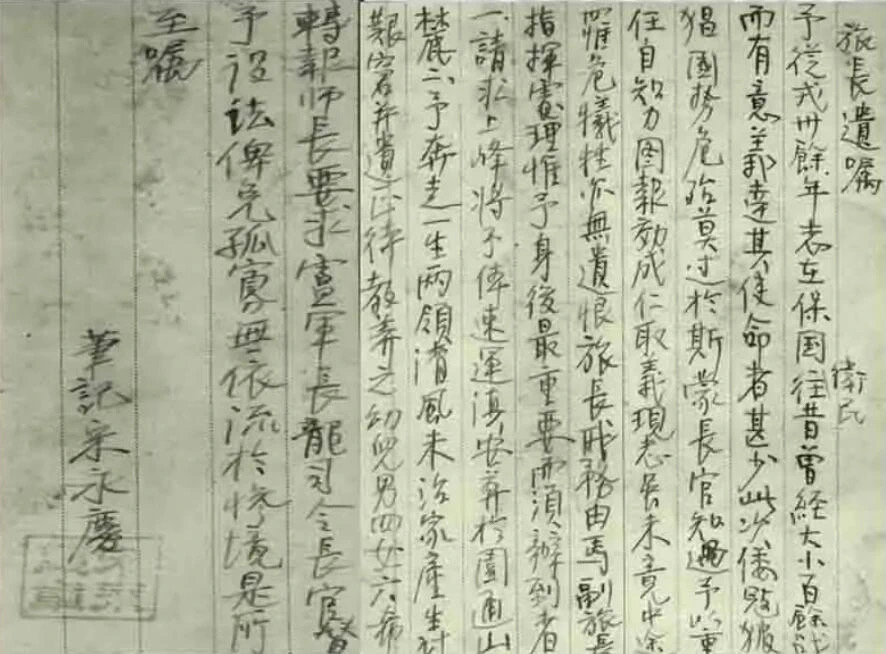 旅長遺囑
予從戎卅餘年志在保国衛民往昔曾经大小百餘战
而有意義達其使命者甚少此次倭敗猖
猖國势危殆莫过於斯蒙長官知遇予以重
任自知力图報効成仁取義現志長未竟中途
罹危犧牲亦無遺恨旅長职務由馬副旅長
指揮處理惟予身後最重要而須辦到者
一請求上峰將予体速運滇安葬於圓通山
麓二予奔走一生两領清風未治家產生計
艱窘并遺正待教养之幼兒男四女六希
轉報师長要求軍長龍司令長官督
予设法俾免孤寡無依流於慘境是所
至囑
筆記宋永慶